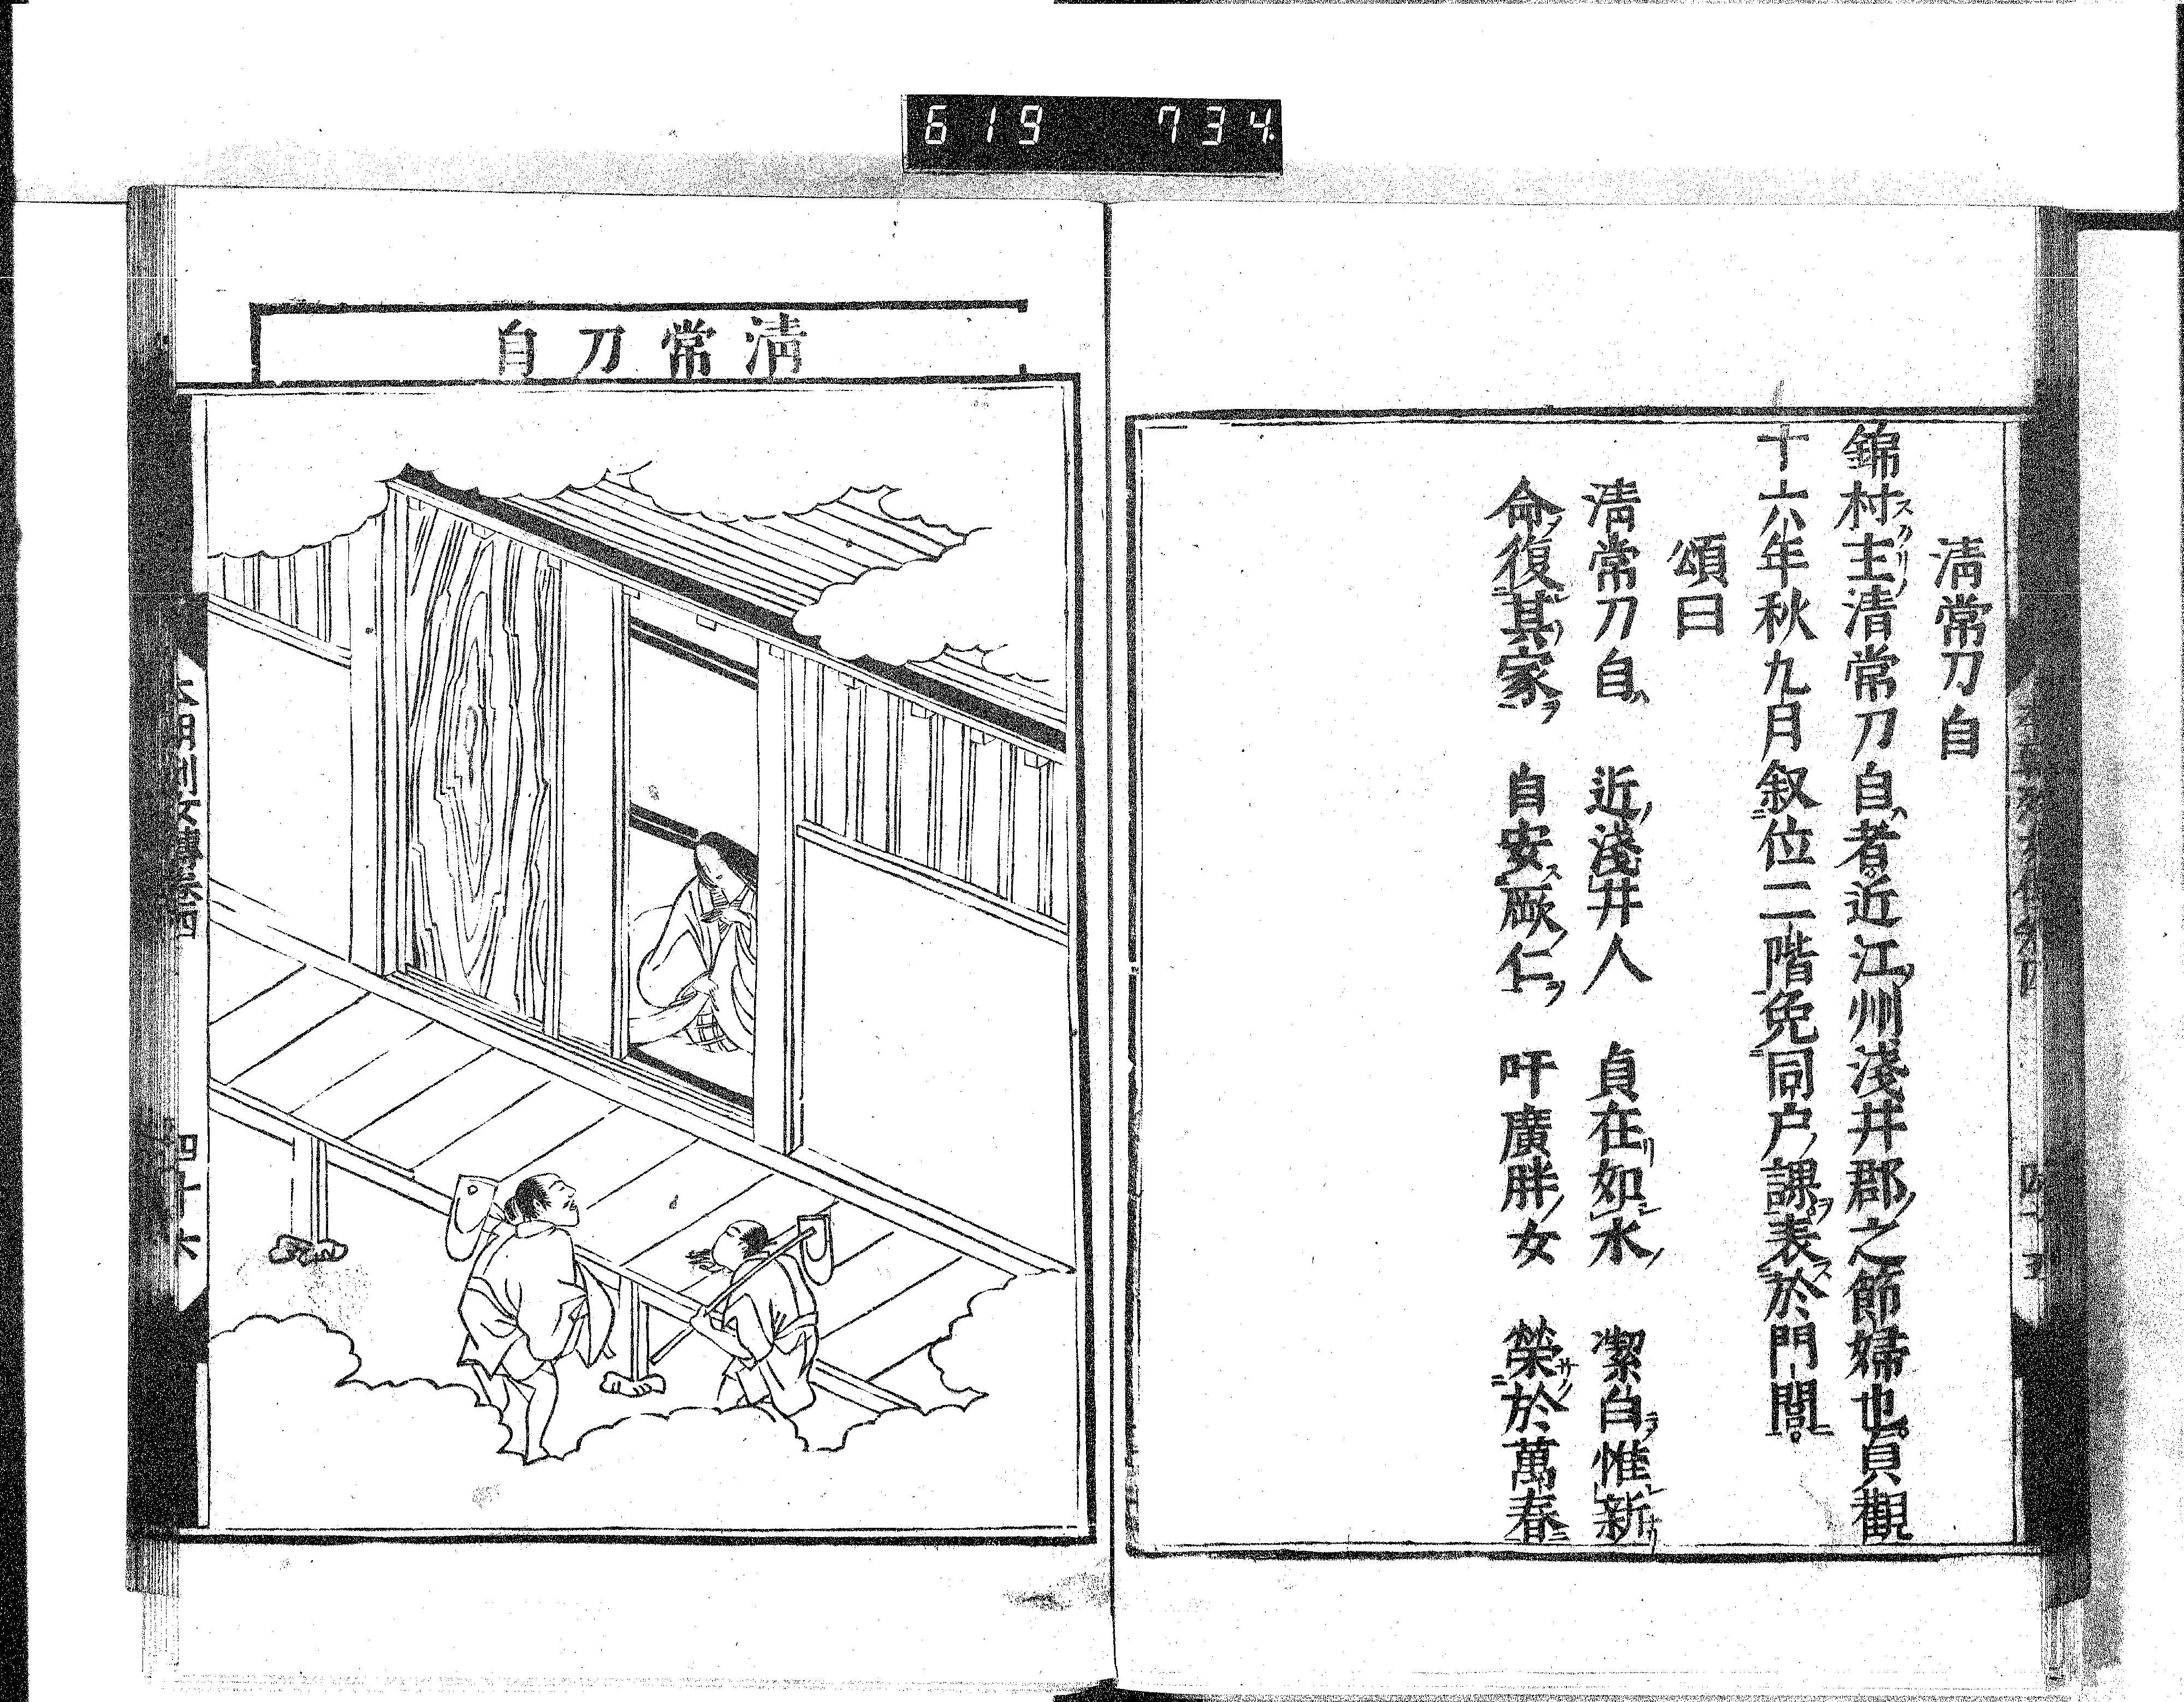 619 734
清常刀自
錦村主清常刀自者近江州淺井郡之節婦也貞觀
十六年秋九月叙位二階免同戸課表於門閭
頌曰
清常刀自 近淺井人 貞在如水 潔白惟新
命復其家 自安厥仁 吁廣胖女 榮於萬春
清常刀自
四十六